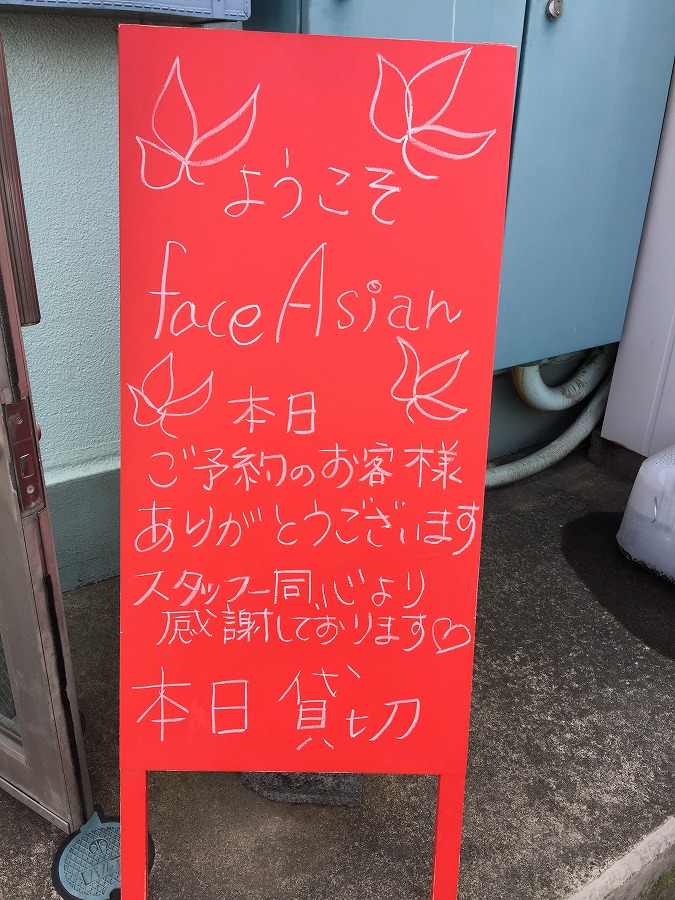 ようこそ
face Asian
本日
ご予約のお客様
ありがとうございます
スタッフ一同、心より
感謝しております♡
本日 貸切